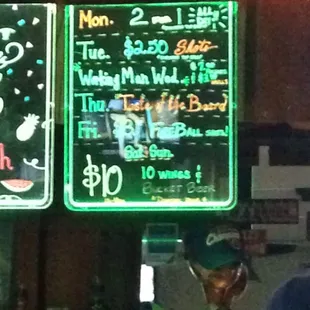 Mon. 2 for 1 ALL DAY
Tue. $2.50 Shots
Working Man Wed.
Thu "Taste of the Board"
Fri $3 FireBall shots!
Sat & Sun
$10 10 wings &
Bucket Beer